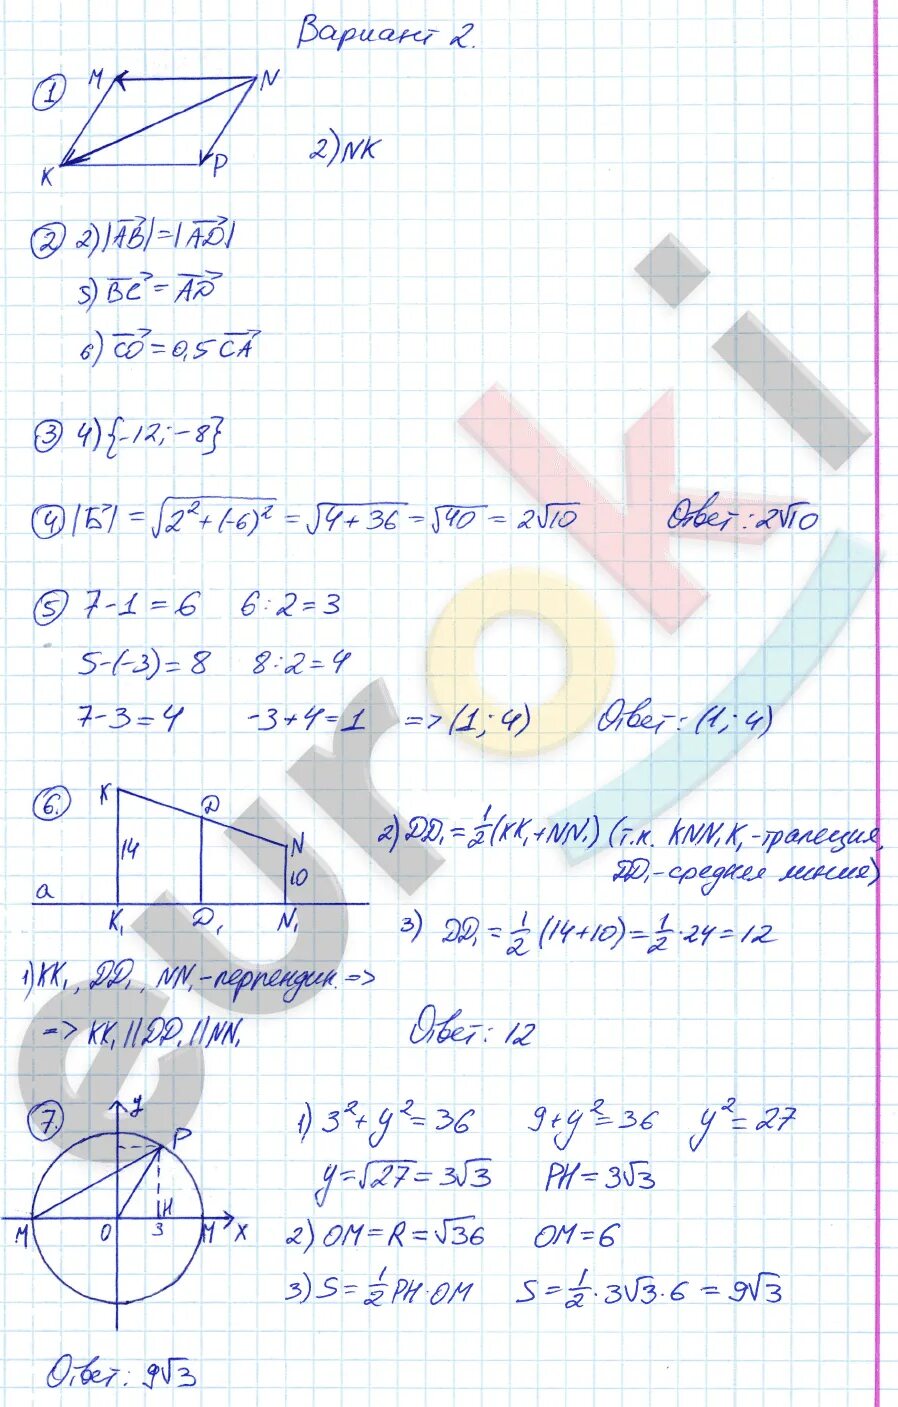 Вариант 2.
1 M N K P
2) NK
2 2) |AB| = |AD|
5) BC = AD
6) CO = 0,5 CA
3 4) {-12; -8}
4 |Б| = √2² + (-6)² = √4 + 36 = √40 = 2√10 Ответ: 2√10
5 7 - 1 = 6 6 : 2 = 3
5 - (-3) = 8 8 : 2 = 4
7 - 3 = 4 -3 + 4 = 1 => (1; 4) Ответ: (1; 4)
6. K D N 14 10 a K₁ D₁ N₁
2) DD₁ = 1/2 (KK₁ + NN₁) (т.к. KNN₁K₁ - трапеция,
DD₁ - средняя линия)
3) DD₁ = 1/2 (14 + 10) = 1/2 · 24 = 12
1) KK₁, DD₁, NN₁ - перпендик. =>
=> KK₁ || DD₁ || NN₁
Ответ: 12
7. y P M O 3 H M x
1) 3² + y² = 36 9 + y² = 36 y² = 27
y = √27 = 3√3 PH = 3√3
2) OM = R = √36 OM = 6
3) S = 1/2 PH · OM S = 1/2 · 3√3 · 6 = 9√3
Ответ: 9√3
euroki